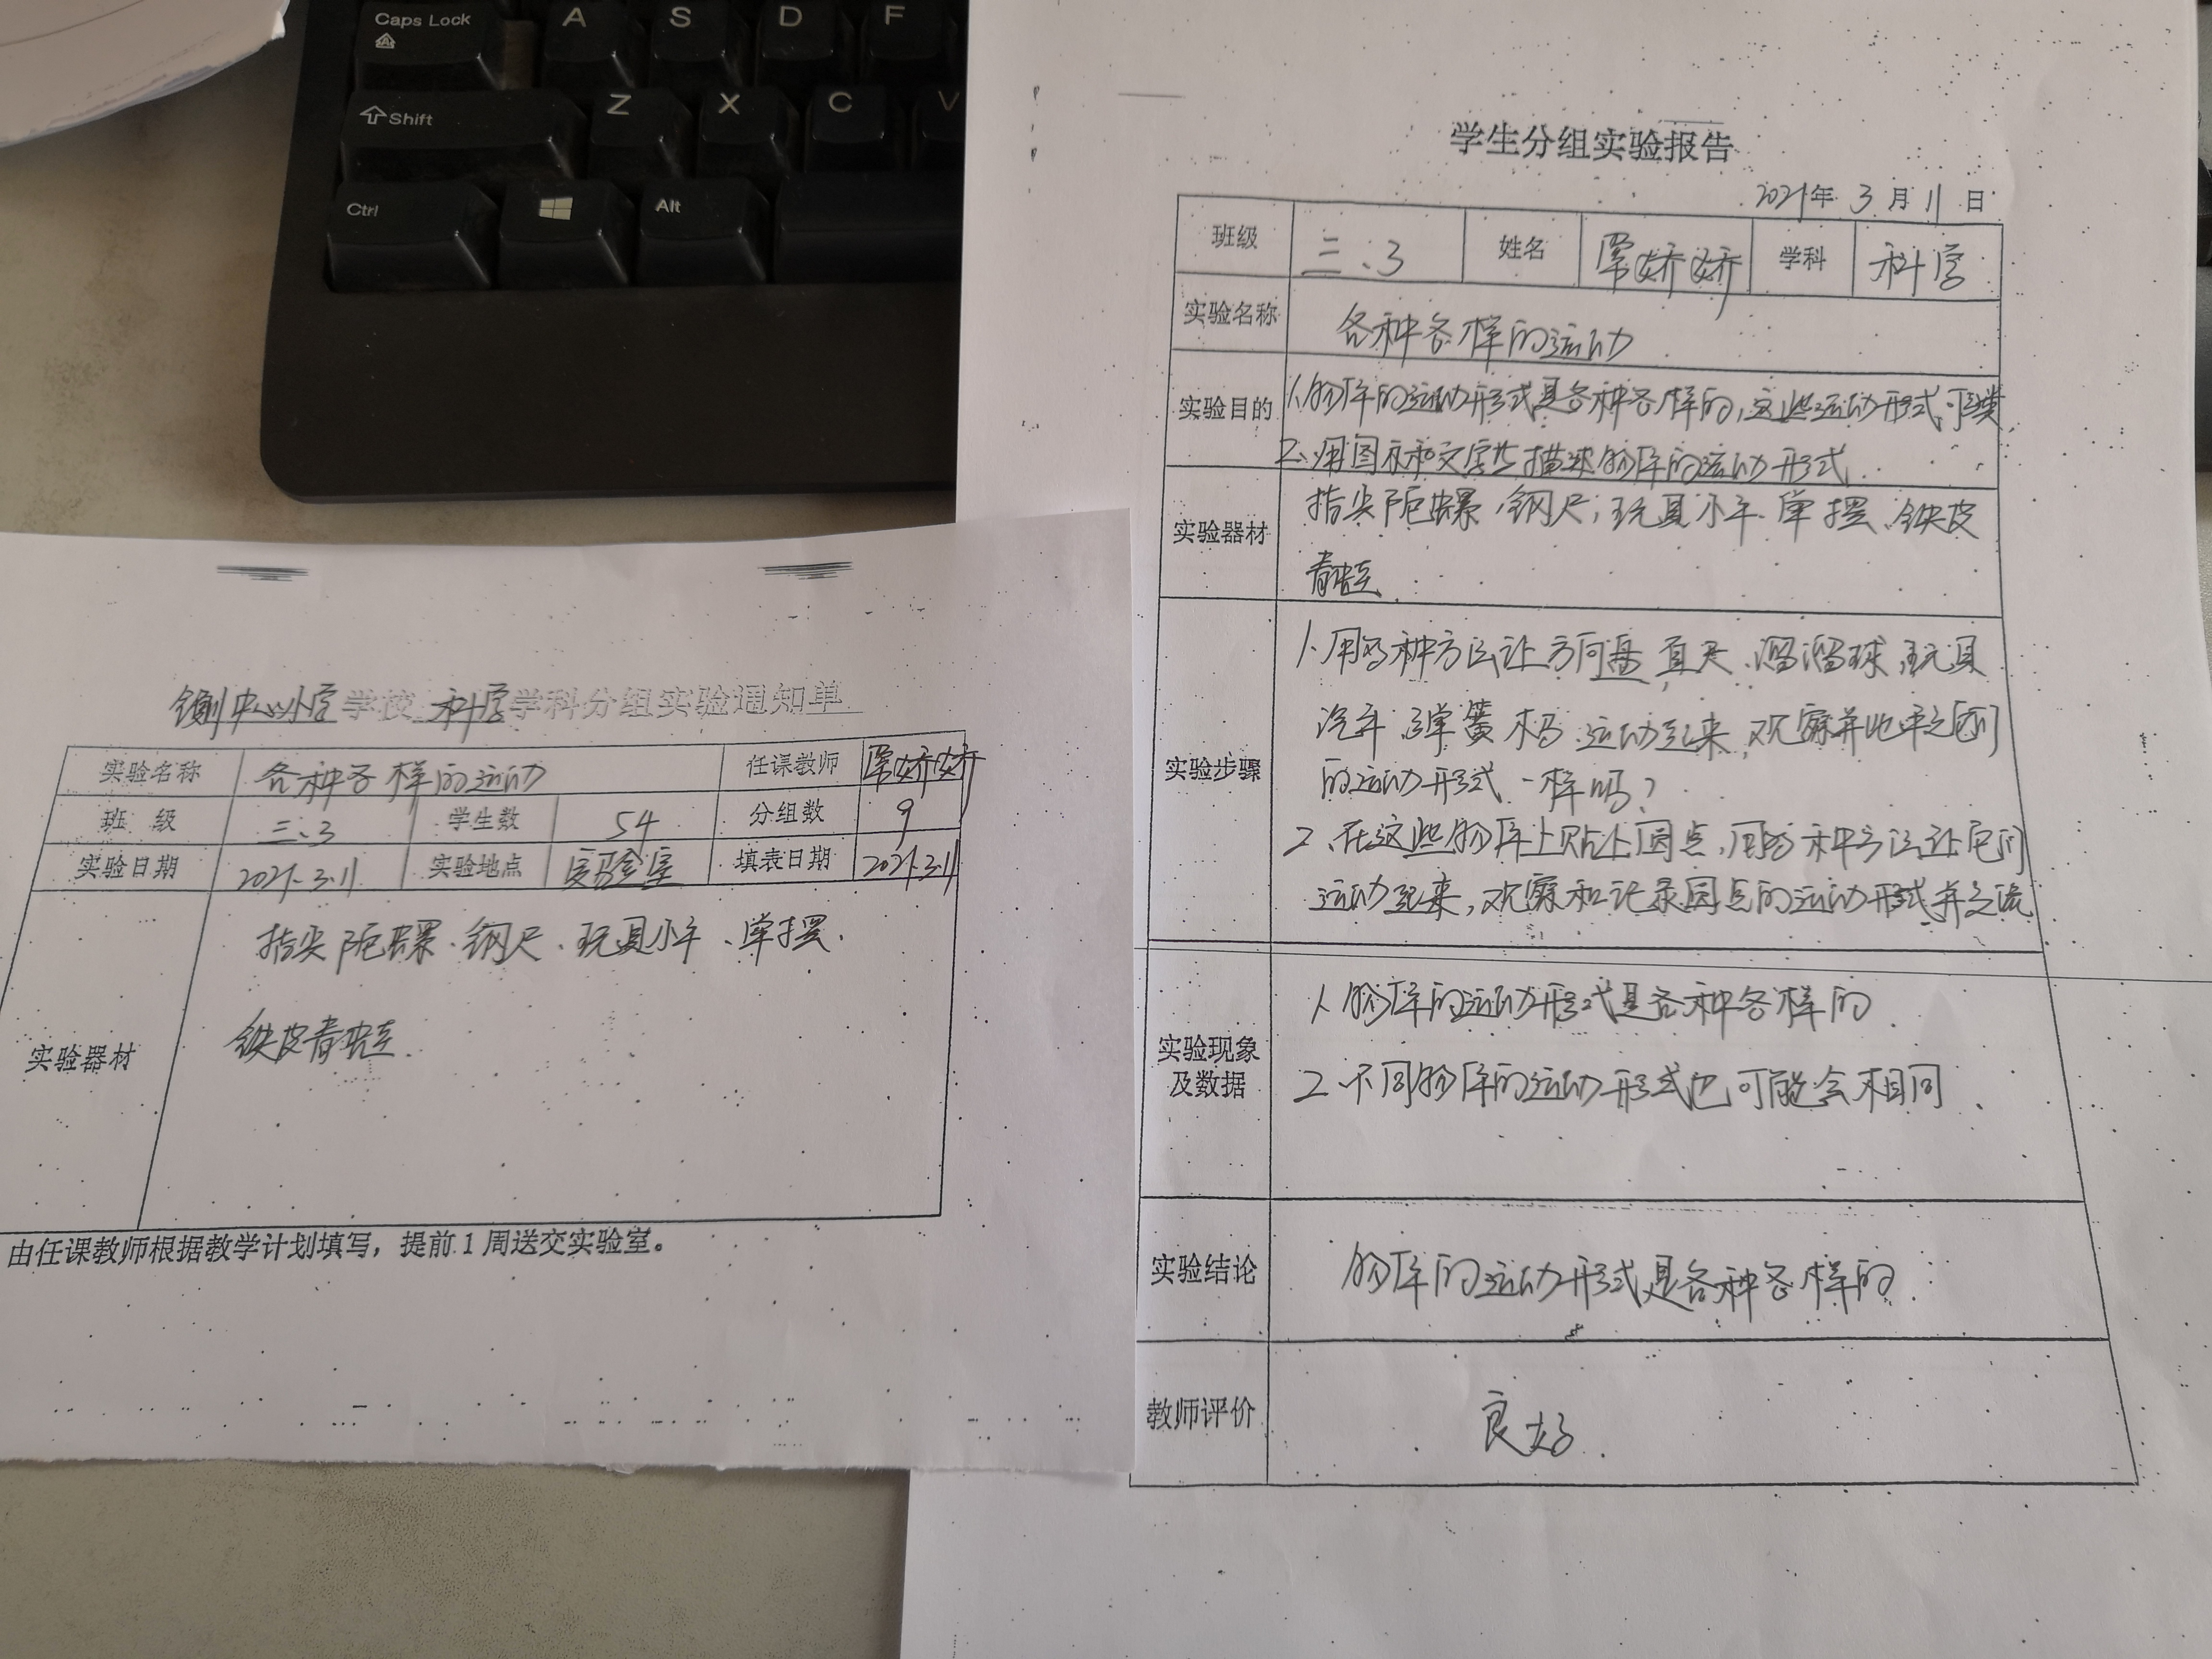 Caps Lock
A
S
D
F
Shift
Z
X
C
V
Ctrl
Alt
中心小学学校 科学学科分组实验通知单
实验名称 各种各样的运动 任课教师 常娇娇
班 级 三、3 学生数 54 分组数 9
实验日期 2021.3.11 实验地点 实验室 填表日期 2021.3.11
实验器材
指尖陀螺、钢尺、玩具小车、单摆、
铁皮青蛙.
由任课教师根据教学计划填写，提前 1 周送交实验室。
学生分组实验报告
2021年 3 月 11 日
班级 三、3 姓名 常娇娇 学科 科学
实验名称 各种各样的运动
实验目的
1.物体的运动形式是各种各样的，这些运动形式可
2、用图示和文字描述物体的运动形式.
实验器材
指尖陀螺、钢尺、玩具小车、单摆、铁皮
青蛙.
实验步骤
1.用多种方法让方向盘、直尺、溜溜球、玩具
汽车、弹簧木马运动起来，观察并比较它们
的运动形式一样吗？
2、在这些物体上贴上圆点，用多种方法让它们
运动起来，观察和记录圆点的运动形式并交流
实验现象
及数据
1.物体的运动形式是各种各样的.
2.不同物体的运动形式也可能会相同.
实验结论
物体的运动形式是各种各样的.
教师评价
良好.